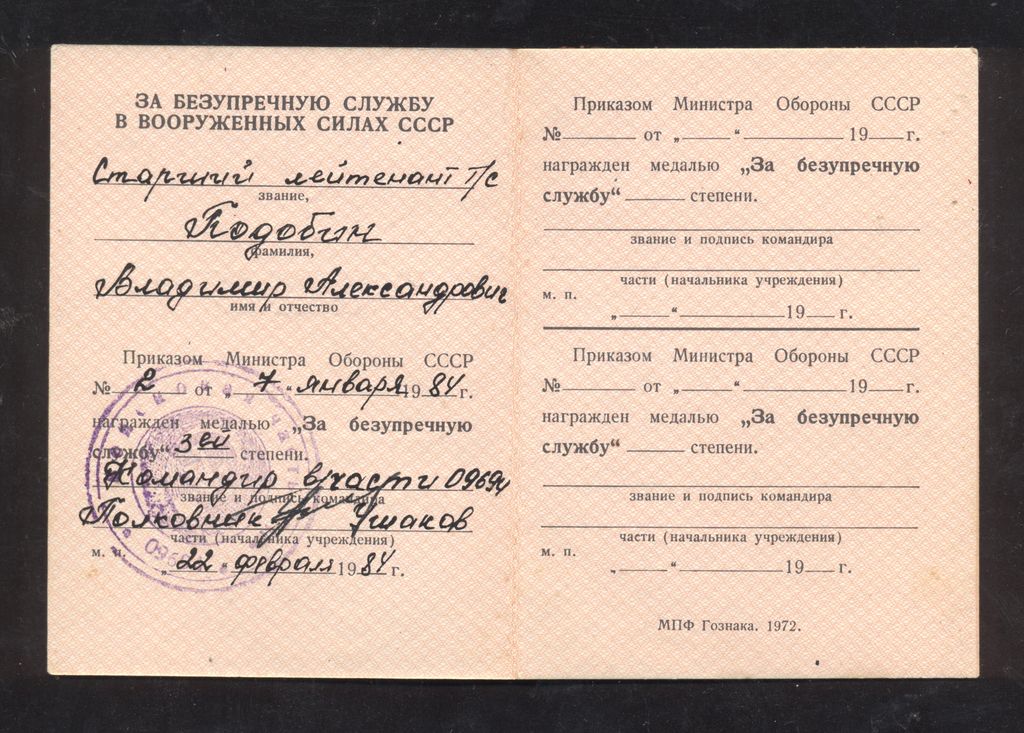 ЗА БЕЗУПРЕЧНУЮ СЛУЖБУ
В ВООРУЖЕННЫХ СИЛАХ СССР
Старший лейтенант т/с
звание,
Подобин
фамилия,
Владимир Александрович
имя и отчество
Приказом Министра Обороны СССР
№ 2 от „ 7 “ января 19 84 г.
награжден медалью „За безупречную
службу“ 3ей степени.
Командир в/части 09694
звание и подпись командира
Полковник Ушаков
части (начальника учреждения)
м. п.
„ 22 “ февраля 19 84 г.
Приказом Министра Обороны СССР
№ от „ “ 19 г.
награжден медалью „За безупречную
службу“ степени.
звание и подпись командира
части (начальника учреждения)
м. п.
„ “ 19 г.
Приказом Министра Обороны СССР
№ от „ “ 19 г.
награжден медалью „За безупречную
службу“ степени.
звание и подпись командира
части (начальника учреждения)
м. п.
„ “ 19 г.
МПФ Гознака. 1972.